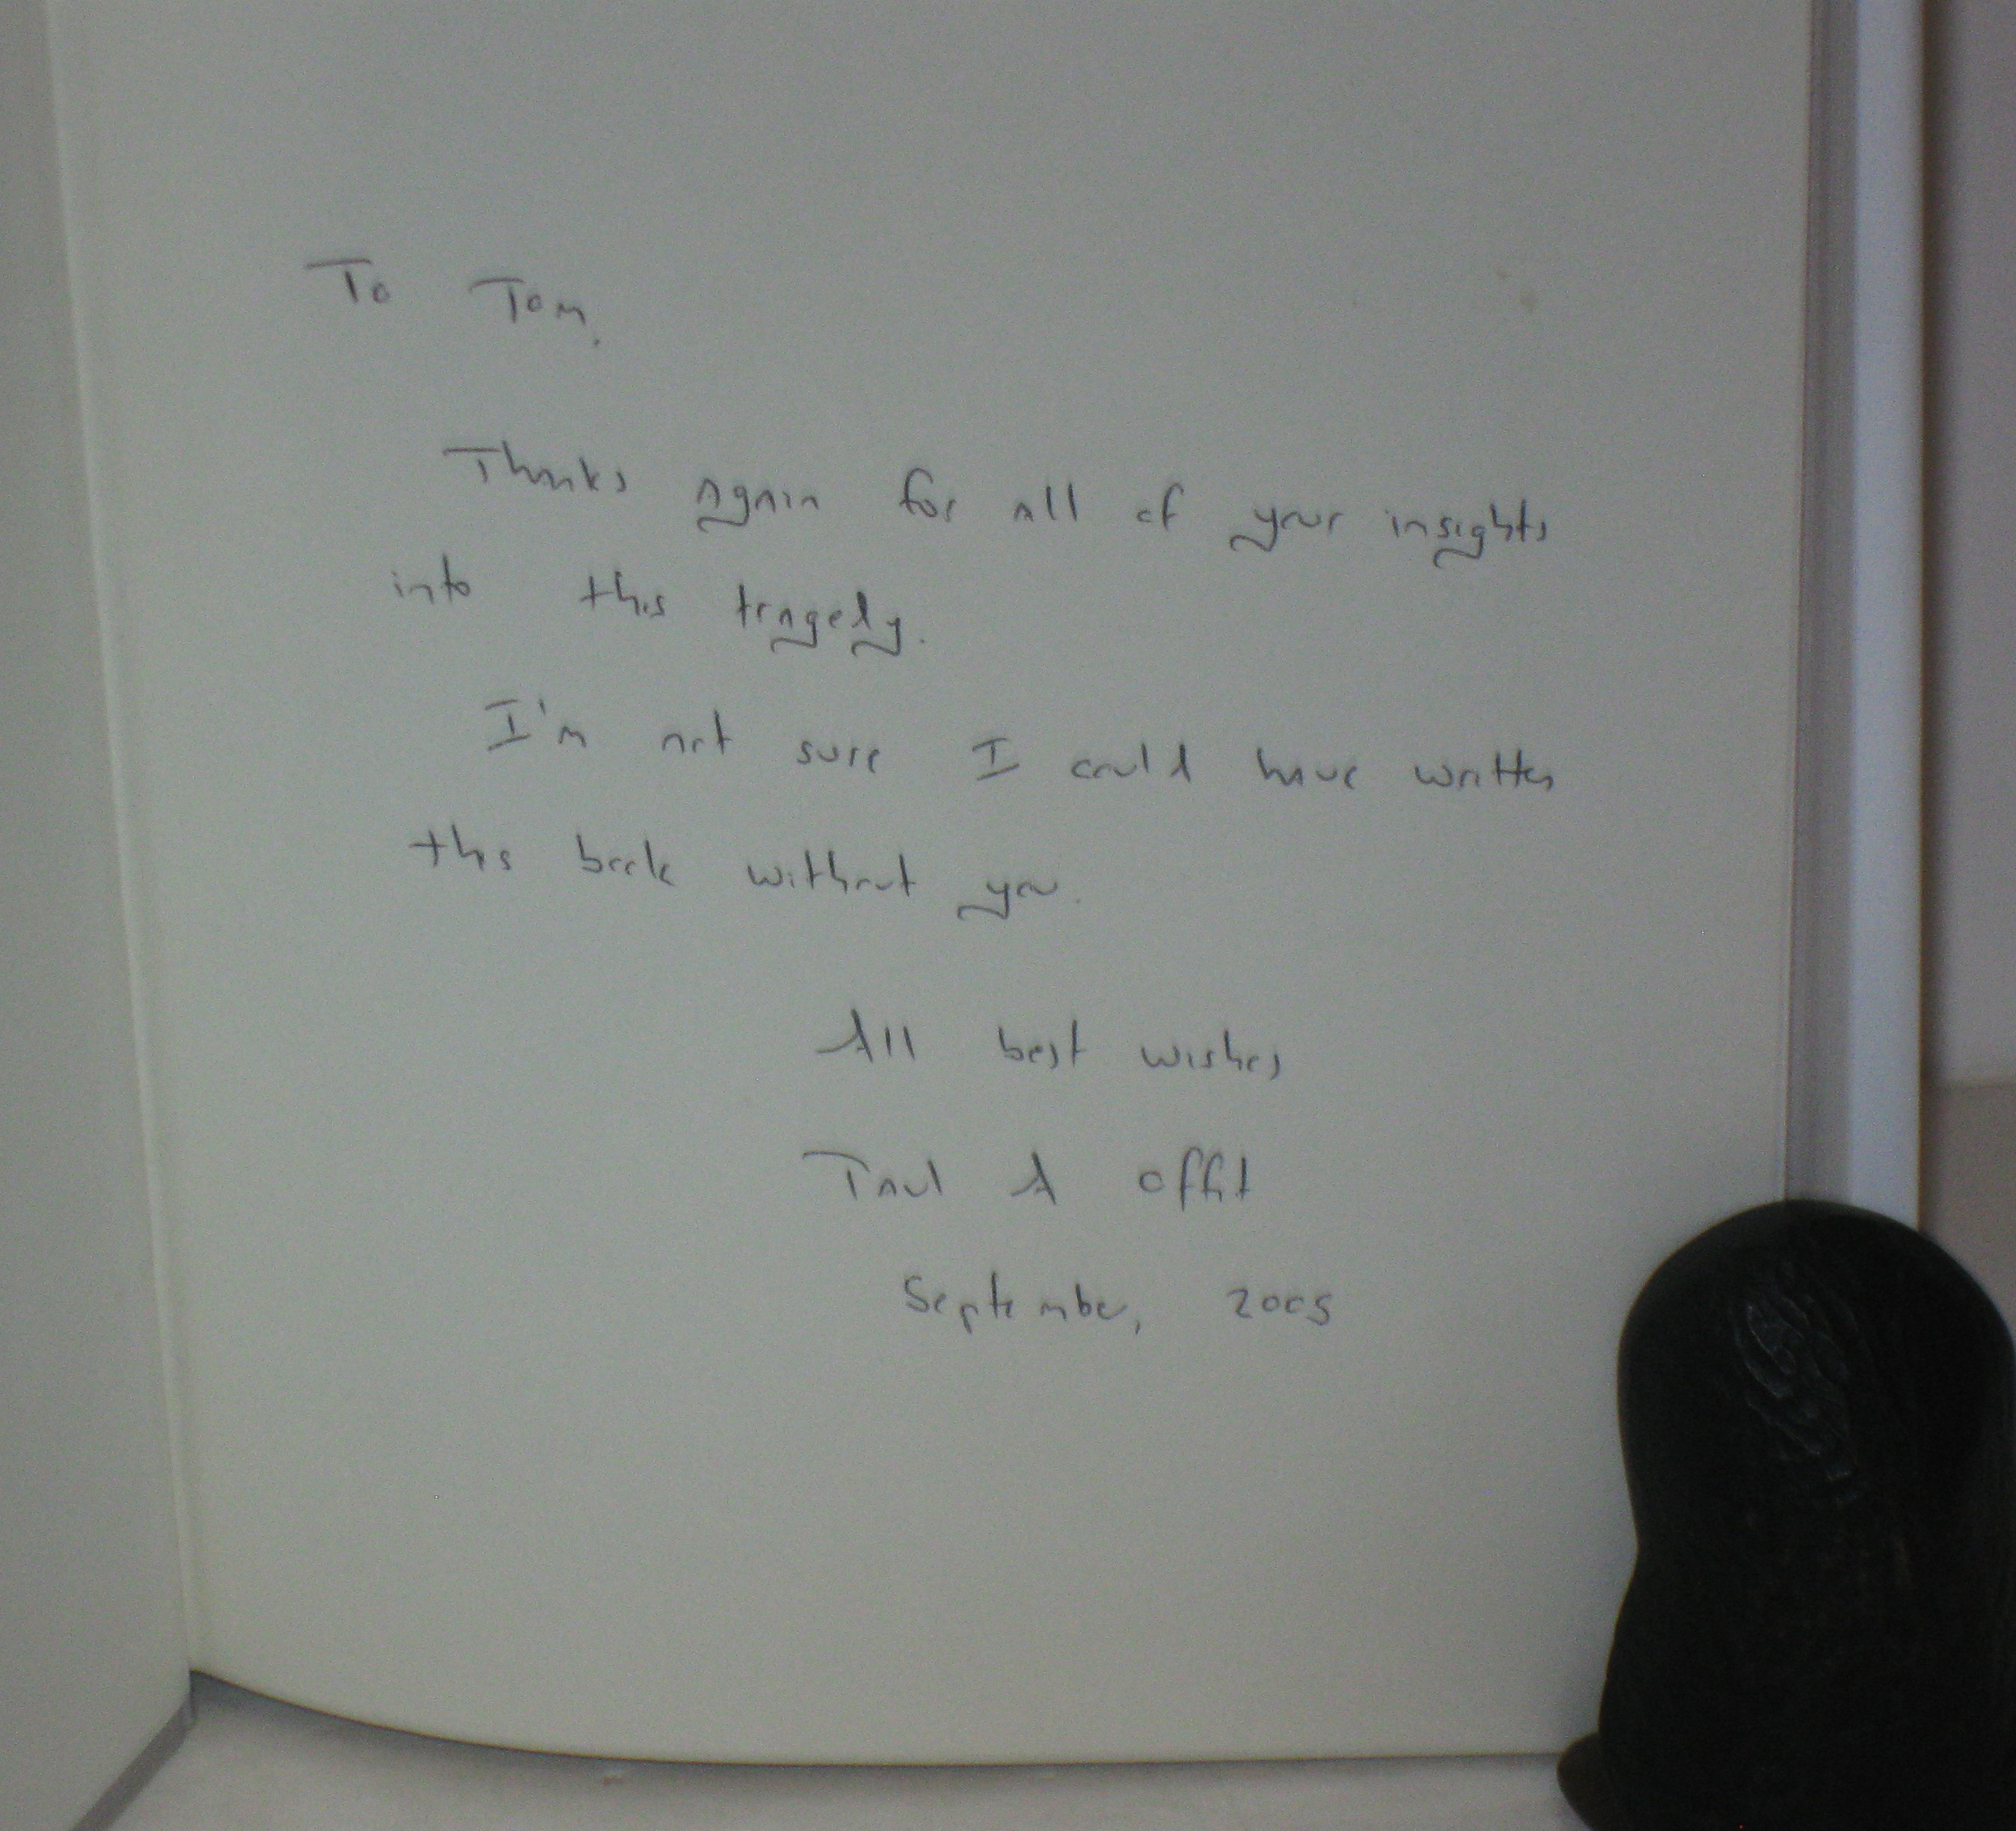 To Tom,
Thanks again for all of your insights
into this tragedy.
I'm not sure I could have written
this book without you.
All best wishes
Paul A Offit
September, 2005